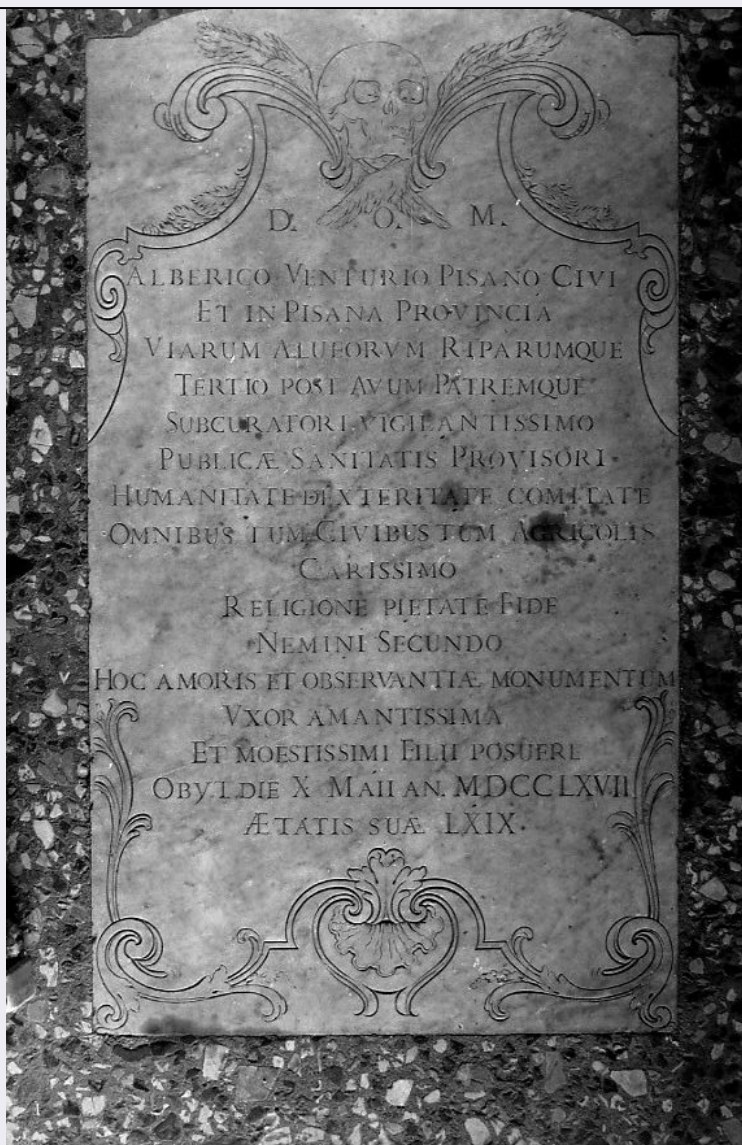 D. O. M.
ALBERICO VENTURIO PISANO CIVI
ET IN PISANA PROVINCIA
VIARUM ALVEORVM RIPARUMQUE
TERTIO POST AVUM PATREMQUE
SUBCURATORI VIGILANTISSIMO
PUBLICÆ SANITATIS PROVISORI
HUMANITATE DEXTERITATE COMITATE
OMNIBUS TUM CIVIBUS TUM AGRICOLIS
CARISSIMO
RELIGIONE PIETATE FIDE
NEMINI SECUNDO
HOC AMORIS ET OBSERVANTIÆ MONUMENTUM
VXOR AMANTISSIMA
ET MOESTISSIMI FILII POSUERE
OBYT DIE X MAII AN. MDCCLXVII
ÆTATIS SUÆ LXIX.